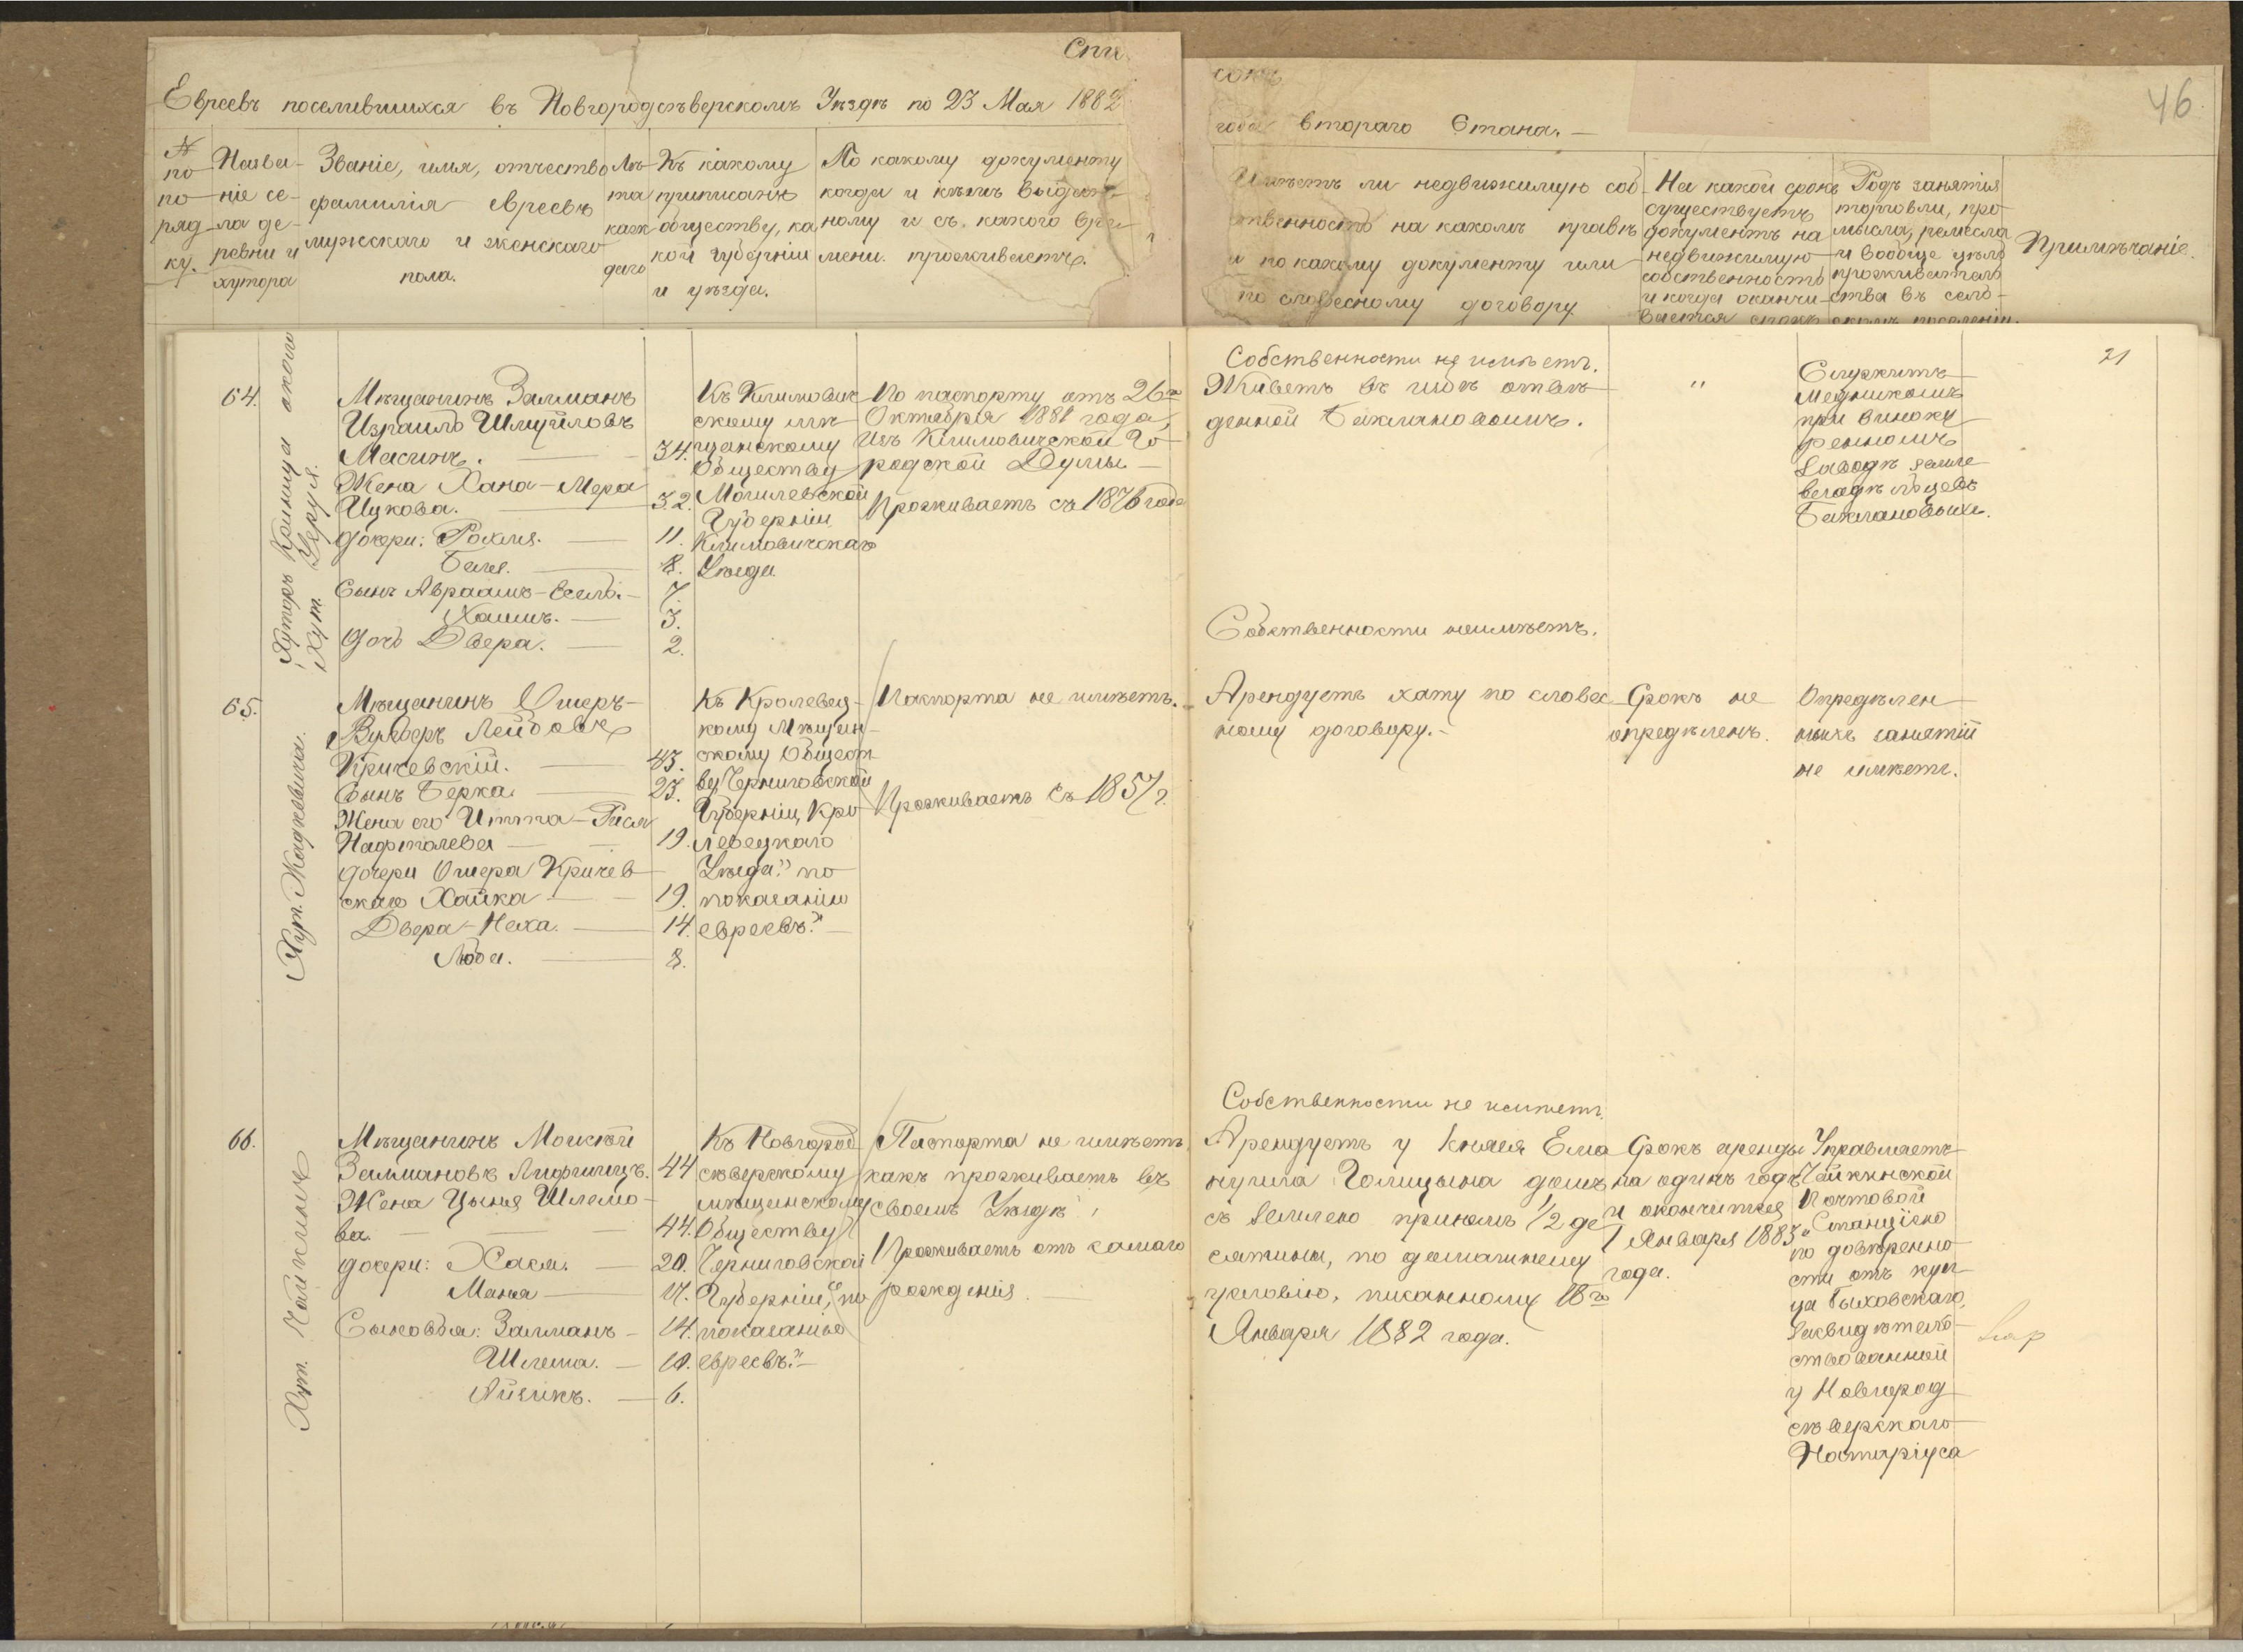 Спи
сокъ
46
Евреевъ поселившихся въ Новгородсѣверскомъ Уѣздѣ по 23 Мая 1882
года втораго Стана.
№ по поряд ку.
Назва-
ніе се-
ла де-
ревни и
хутора
Званіе, имя, отчество
фамилія евреевъ
мужскаго и женскаго
пола.
Лѣ-
та
каж
даго
Къ какому
приписанъ
обществу, ка
кой губерніи
и уѣзда.
По какому документу
когда и кѣмъ выдан-
ному и съ какого вре-
мени проживаетъ.
Имѣетъ ли недвижимую соб-
твенность на какомъ правѣ
и по какому документу или
по словесному договору
На какой срокъ
существуетъ
документъ на
недвижимую
собственность
и когда оканчи-
вается срокъ
Родъ занятія
торговли, про
мысла, ремесла
и вообще цѣль
прожиратель
ства въ сель-
скомъ поселеніи.
Примѣчаніе.
21
64.
Хуторъ Криница
Хут.
Мѣщанинъ Залманъ
Израиль Шмуйловъ
Масинъ. 34.
Жена Хана-Мера
Ицкова. 32.
Дочери: Рохля. 11.
Бася. 8.
Сынъ Авраамъ- 7.
Хаимъ. 3.
Дочь Двера. 2.
Къ Климович
скому мѣ
щанскому
Обществу
Могилевской
Губерніи
Климовичскаго
Уѣзда
По паспорту отъ 26го
Октября 1881 года,
Изъ Климовичской Го-
родской Думы
Проживаетъ съ 1876 года
Собственности не имѣетъ.
Живетъ въ избѣ отве-
денной Баклановымъ.
"
Служитъ
Медникомъ
при виноку
ренномъ
Заводѣ земле
Баклановыхъ.
Собственности неимѣетъ.
65.
Хут. Жадкевича.
Мѣщанинъ Ошеръ-
Вульверъ Лейбовъ
Кричевскій. 43.
Сынъ Берка. 23.
Жена его Итта-Рися
Нафталева 19.
дочери Ошера Кричев
скаго Хайка 19.
Двера-Неха. 14.
Люба. 8.
Къ Кролевец-
кому Мѣщан-
скому Общест
ву Черниговской
Губерніи, Кро
левецкаго
Уѣзда" по
показанію
евреевъ."
Паспорта не имѣетъ.
Проживаетъ съ 1857 г.
Арендуетъ хату по словес
ному договору.
Срокъ не
опредѣленъ.
Опредѣлен
ныхъ занятій
не имѣетъ.
66.
Хут. Чайкинъ
Мѣщанинъ Моисѣй
Залмановъ Лифшицъ. 44
Жена Цынья Шлемо-
ва. 44.
дочери: Хася. 20.
Манья 17.
Сыновья: Залманъ 14.
Шлема. 10.
Айзикъ. 6.
Къ Новгород
сѣверскому
мѣщанскому
Обществу
Черниговской
Губерніи, "по
показанію
евреевъ."
Паспорта не имѣетъ
какъ проживаетъ въ
своемъ Уѣздѣ,
Проживаетъ отъ самаго
рожденія
Собственности не имѣетъ.
Арендуетъ у Князя Ема
нуила Голицына домъ
съ землею прикомъ 1/2 де
сятины, по домашнему
условію, писанному 18го
Января 1882 года.
Срокъ аренды
на одинъ годъ
и окончится
1 Января 1883го
года.
Управляетъ
Чайкинской
Почтовой
Станціею
по довѣренно
сти отъ куп
ца Быховскаго,
Засвидѣтель-
ствованной
у Новгород
сѣверскаго
Нотаріуса